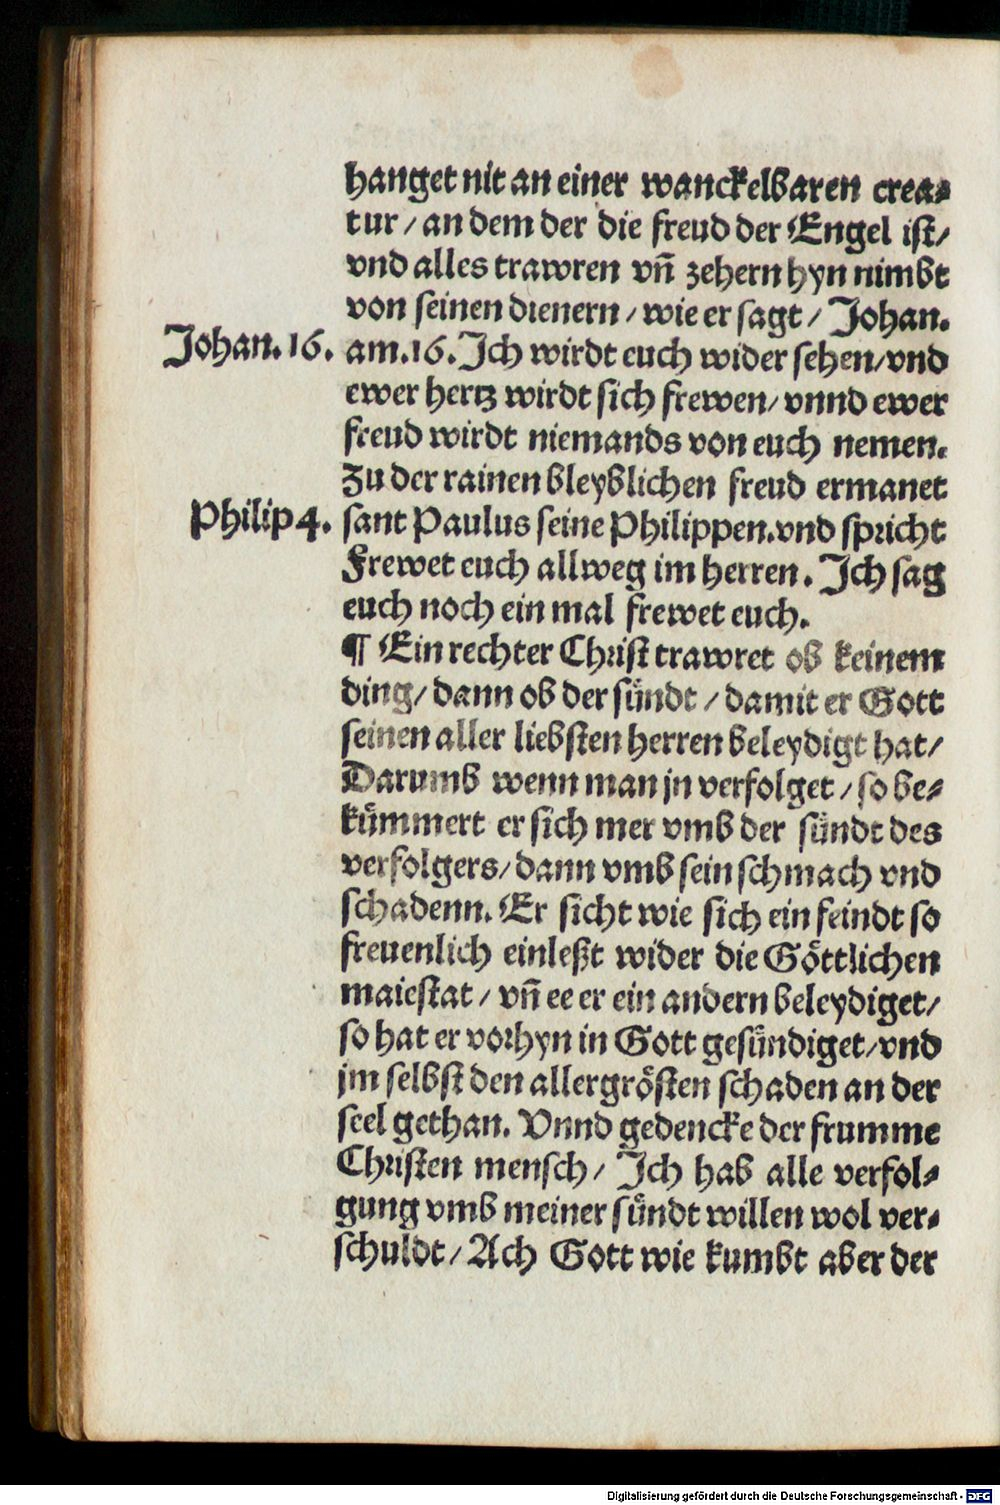 hanget nit an einer wanckelbaren crea⸗
tur / an dem der die freud der Engel ist/
vnd alles trawren vñ zehern hyn nimbt
von seinen dienern / wie er sagt / Johan.
Johan. 16.
am. 16. Ich wirdt euch wider sehen/vnd
ewer hertz wirdt sich frewen/ vnnd ewer
freud wirdt niemands von euch nemen.
Zu der rainen bleyblichen freud ermanet
Philip 4.
sant Paulus seine Philippen. vnd spricht
Frewet euch allweg im herren. Ich sag
euch noch ein mal frewet euch.
¶ Ein rechter Christ trawret ob keinem
ding/ dann ob der sündt / damit er Gott
seinen aller liebsten herren beleydigt hat/
Darumb wenn man jn verfolget / so be⸗
kümmert er sich mer vmb der sündt des
verfolgers/ dann vmb sein schmach vnd
schadenn. Er sicht wie sich ein feindt so
freuenlich einleßt wider die Göttlichen
maiestat / vñ ee er ein andern beleydiget/
so hat er vorhyn in Gott gesündiget/vnd
jm selbst den allergrösten schaden an der
seel gethan. Vnnd gedencke der frumme
Christen mensch / Ich hab alle verfol⸗
gung vmb meiner sündt willen wol ver⸗
schuldt / Ach Gott wie kumbt aber der
Digitalisierung gefördert durch die Deutsche Forschungsgemeinschaft - DFG